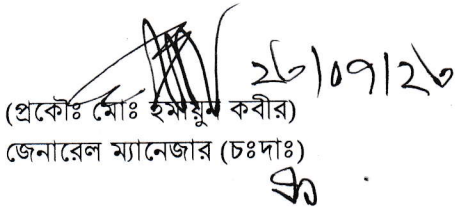 ২৩/০৭/২৩
(প্রকৌঃ মোঃ হুমায়ুন কবীর)
জেনারেল ম্যানেজার (চঃদাঃ)